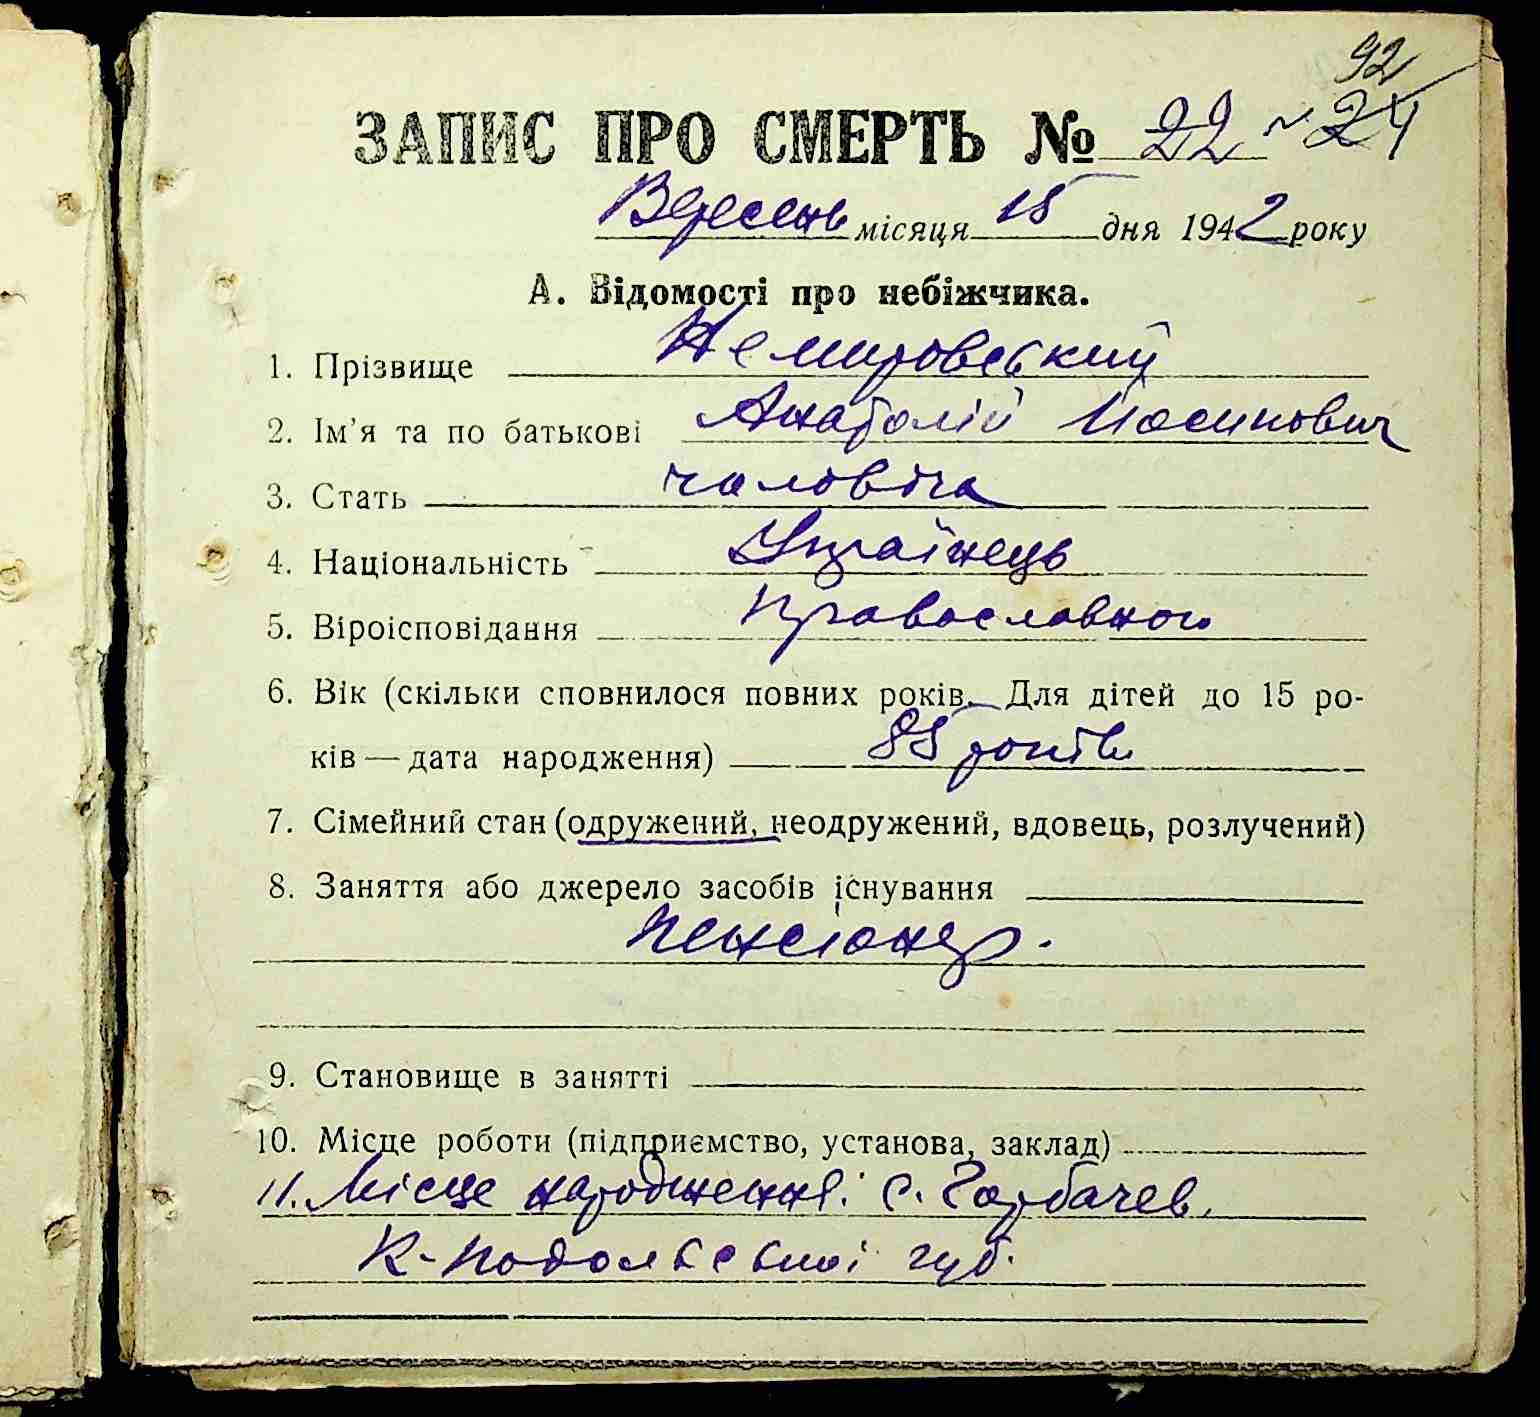 92
ЗАПИС ПРО СМЕРТЬ № 22 24
Вересень місяця 15 дня 1942 року
А. Відомості про небіжчика.
1. Прізвище Немировський
2. Ім'я та по батькові Анатолій Йосипович
3. Стать чоловіча
4. Національність Українець
5. Віроісповідання православного
6. Вік (скільки сповнилося повних років. Для дітей до 15 ро-
ків — дата народження) 85 років
7. Сімейний стан (одружений, неодружений, вдовець, розлучений)
8. Заняття або джерело засобів існування
пенсіонер.
9. Становище в занятті
10. Місце роботи (підприємство, установа, заклад)
11. Місце народження: с. Горбачев,
К-Подольської губ.